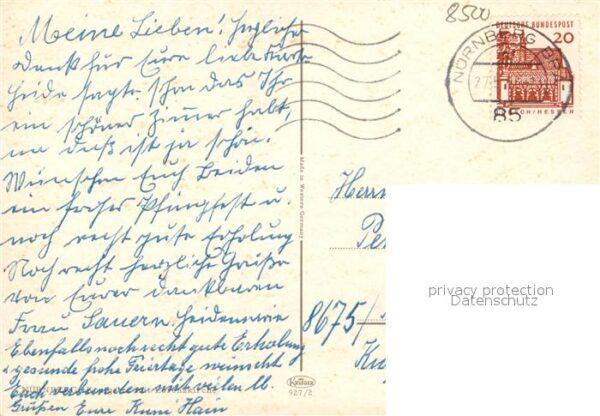 Meine Lieben! Herzliche
Dank für Eure liebe Karte
Heide sagte schon das Ihr
ein schönes Zimer habt,
na dieß ist ja schön.
Wünschen Euch Beiden
ein frohes Pfingsfest u.
noch recht gute Erholung
Noch recht herzliche Grüße
von Eurer dankbaren
Frau Sauern Heidemarie
Ebenfalls noch recht gute Erholung
gesunde frohe Feiertage wünscht
Euch verbunden mit vielen lb.
Grüßen Eure Kuni Hain
8500
DEUTSCHE BUNDESPOST
20
NÜRNBERG
85
LORSCH/HESSEN
Made in Western Germany
Herrn
8675/
privacy protection
Datenschutz
Krüger
927/2